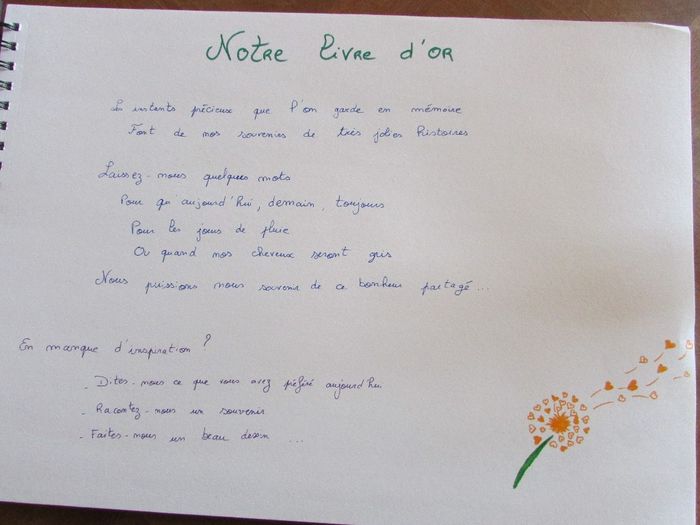 Notre livre d'or
Les instants précieux que l'on garde en mémoire
Font de nos souvenirs de très jolies histoires
Laissez-nous quelques mots
Pour qu'aujourd'hui, demain, toujours
Pour les jours de pluie
Ou quand nos cheveux seront gris
Nous puissions nous souvenir de ce bonheur partagé...
En manque d'inspiration ?
- Dites-nous ce que vous avez préféré aujourd'hui
- Racontez-nous un souvenir
- Faites-nous un beau dessin ...